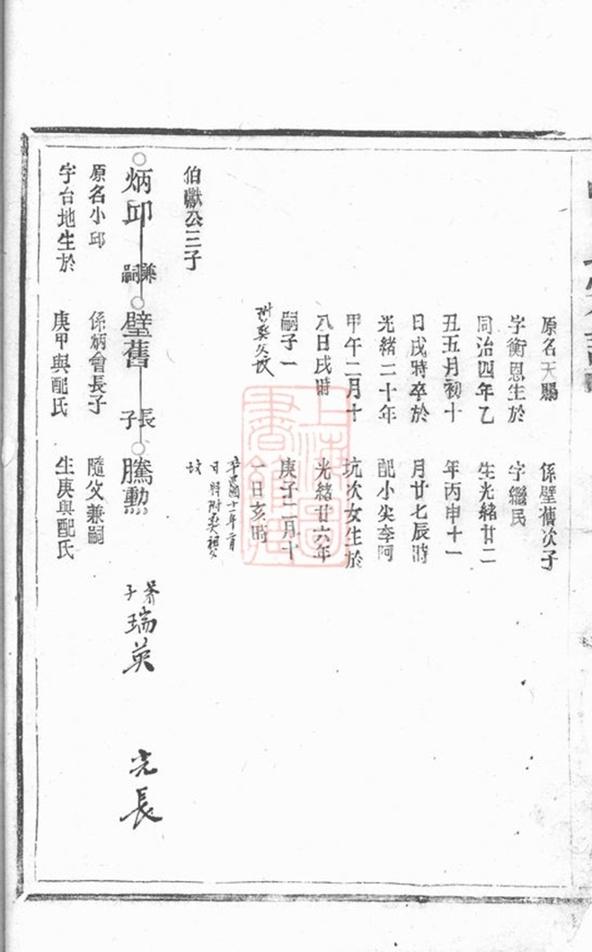 原名天賜
字衡恩生於
同治四年乙
丑五月初十
日戌時卒於
光緒二十年
甲午二月十
八日戌時
嗣子一
係壁舊次子
字繼民
生光緒廿二
年丙申十一
月廿七辰時
配小尖李阿
坑次女生於
光緒廿六年
庚子二月十
一日亥時
伯獻公三子
炳邱
兼嗣
壁舊
長子
騰勲
養子
瑞英
光長
原名小邱
係炳會長子
隨父兼嗣
字台地生於
庚甲與配氏
生庚與配氏
上海圖書館藏